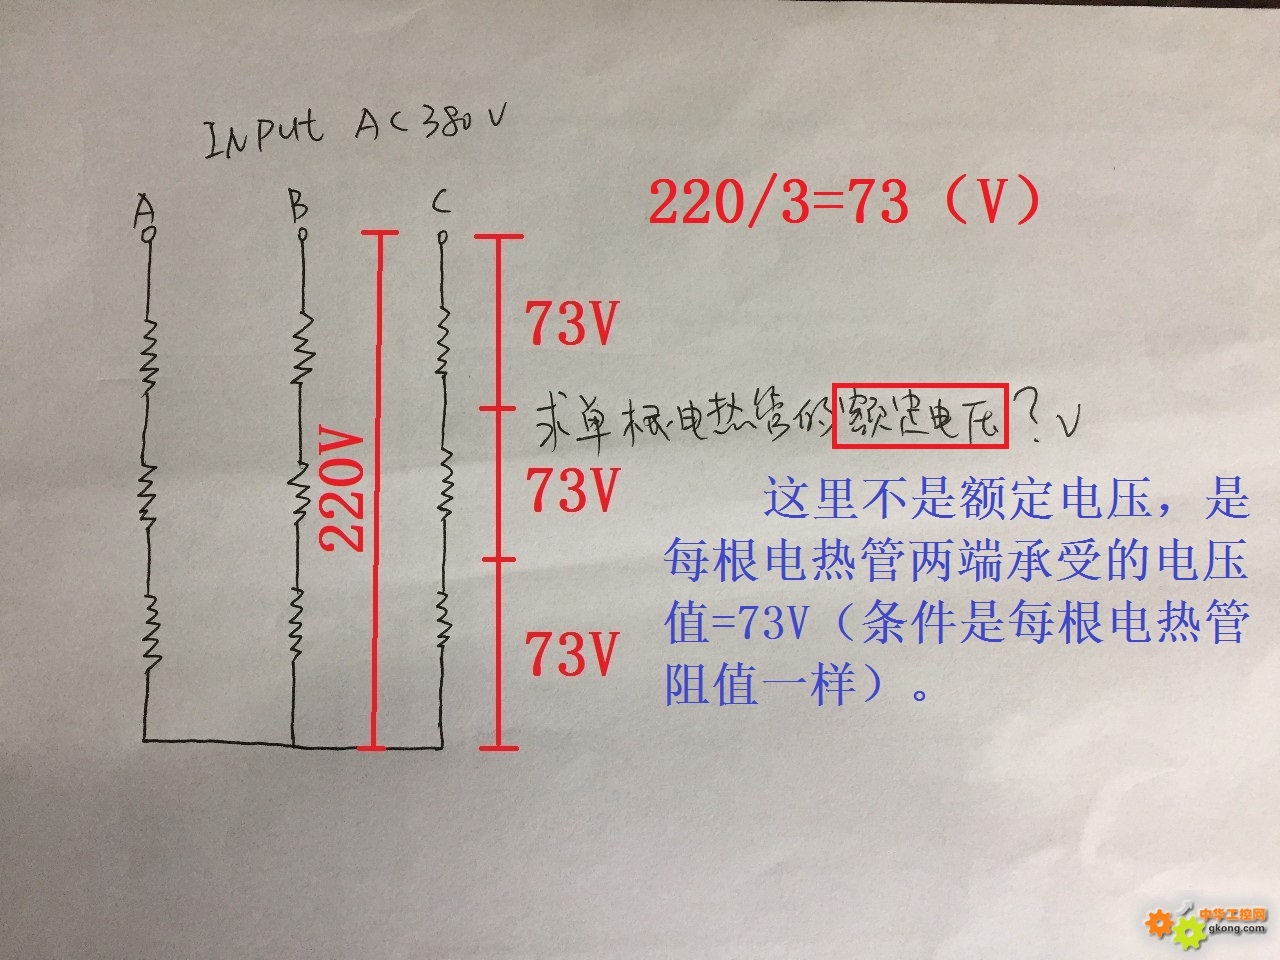 INPUT AC380V
A B C
220/3=73（V）
73V
求单根电热管的额定电压？V
220V
73V
这里不是额定电压，是
每根电热管两端承受的电压
值=73V（条件是每根电热管
阻值一样）。
73V
中华工控网
gkong.com